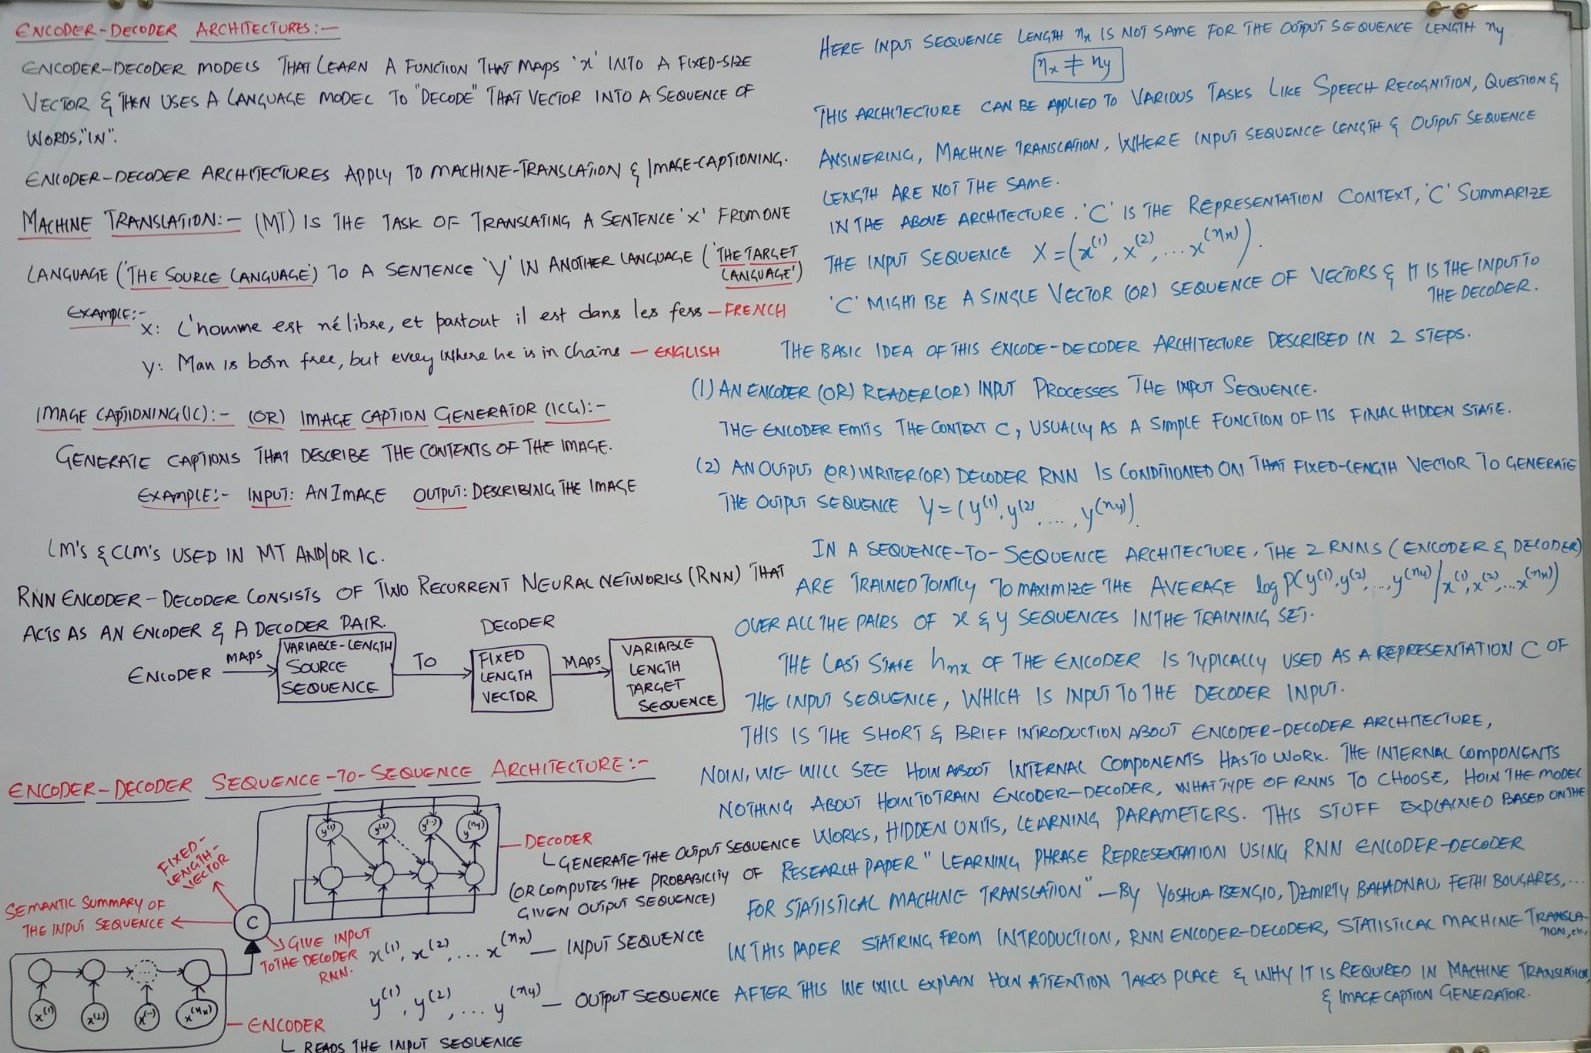 ENCODER-DECODER ARCHITECTURES:-
ENCODER-DECODER MODELS THAT LEARN A FUNCTION THAT MAPS 'x' INTO A FIXED-SIZE
VECTOR & THEN USES A LANGUAGE MODEL TO "DECODE" THAT VECTOR INTO A SEQUENCE OF
WORDS,"IN".
ENCODER-DECODER ARCHITECTURES APPLY TO MACHINE-TRANSLATION & IMAGE-CAPTIONING.
MACHINE TRANSLATION:- (MT) IS THE TASK OF TRANSLATING A SENTENCE 'X' FROM ONE
LANGUAGE ('THE SOURCE LANGUAGE') TO A SENTENCE 'Y' IN ANOTHER LANGUAGE ('THE TARGET
LANGUAGE')
EXAMPLE:-
X: L'homme est né libre, et partout il est dans les fers - FRENCH
Y: Man is born free, but every where he is in chains - ENGLISH
IMAGE CAPTIONING(IC):- (OR) IMAGE CAPTION GENERATOR (ICG):-
GENERATE CAPTIONS THAT DESCRIBE THE CONTENTS OF THE IMAGE.
EXAMPLE:- INPUT: AN IMAGE OUTPUT: DESCRIBING THE IMAGE
LM'S & CLM'S USED IN MT AND/OR IC.
RNN ENCODER-DECODER CONSISTS OF TWO RECURRENT NEURAL NETWORKS (RNN) THAT
ACTS AS AN ENCODER & A DECODER PAIR.
DECODER
ENCODER MAPS
VARIABLE-LENGTH
SOURCE
SEQUENCE
TO
FIXED
LENGTH
VECTOR
MAPS
VARIABLE
LENGTH
TARGET
SEQUENCE
ENCODER-DECODER SEQUENCE-TO-SEQUENCE ARCHITECTURE:-
y(1) y(2) y(...) y(ny)
DECODER
GENERATE THE OUTPUT SEQUENCE
(OR COMPUTES THE PROBABILITY OF
GIVEN OUTPUT SEQUENCE)
FIXED-
LENGTH-
VECTOR
SEMANTIC SUMMARY OF
THE INPUT SEQUENCE
C
GIVE INPUT
TO THE DECODER
RNN.
x(1), x(2), ... x(nx) - INPUT SEQUENCE
y(1), y(2), ... y(ny) - OUTPUT SEQUENCE
x(1) x(2) x(...) x(nx)
ENCODER
READS THE INPUT SEQUENCE
HERE INPUT SEQUENCE LENGTH nx IS NOT SAME FOR THE OUTPUT SEQUENCE LENGTH ny
nx ≠ ny
THIS ARCHITECTURE CAN BE APPLIED TO VARIOUS TASKS LIKE SPEECH RECOGNITION, QUESTION &
ANSWERING, MACHINE TRANSLATION, WHERE INPUT SEQUENCE LENGTH & OUTPUT SEQUENCE
LENGTH ARE NOT THE SAME.
IN THE ABOVE ARCHITECTURE. 'C' IS THE REPRESENTATION CONTEXT, 'C' SUMMARIZE
THE INPUT SEQUENCE X = (x(1), x(2), ... x(nx)).
'C' MIGHT BE A SINGLE VECTOR (OR) SEQUENCE OF VECTORS & IT IS THE INPUT TO
THE DECODER.
THE BASIC IDEA OF THIS ENCODE-DECODER ARCHITECTURE DESCRIBED IN 2 STEPS.
(1) AN ENCODER (OR) READER (OR) INPUT PROCESSES THE INPUT SEQUENCE.
THE ENCODER EMITS THE CONTEXT C, USUALLY AS A SIMPLE FUNCTION OF ITS FINAL HIDDEN STATE.
(2) AN OUTPUT (OR) WRITER (OR) DECODER RNN IS CONDITIONED ON THAT FIXED-LENGTH VECTOR TO GENERATE
THE OUTPUT SEQUENCE Y = (y(1), y(2), ..., y(ny)).
IN A SEQUENCE-TO-SEQUENCE ARCHITECTURE, THE 2 RNNS (ENCODER & DECODER)
ARE TRAINED JOINTLY TO MAXIMIZE THE AVERAGE log P(y(1), y(2), ..., y(ny) / x(1), x(2), ... x(nx))
OVER ALL THE PAIRS OF x & y SEQUENCES IN THE TRAINING SET.
THE LAST STATE hnx OF THE ENCODER IS TYPICALLY USED AS A REPRESENTATION C OF
THE INPUT SEQUENCE, WHICH IS INPUT TO THE DECODER INPUT.
THIS IS THE SHORT & BRIEF INTRODUCTION ABOUT ENCODER-DECODER ARCHITECTURE,
NOW, WE WILL SEE HOW ABOUT INTERNAL COMPONENTS HAS TO WORK. THE INTERNAL COMPONENTS
NOTHING ABOUT HOW TO TRAIN ENCODER-DECODER, WHAT TYPE OF RNNS TO CHOOSE, HOW THE MODEL
WORKS, HIDDEN UNITS, LEARNING PARAMETERS. THIS STUFF EXPLAINED BASED ON THE
RESEARCH PAPER "LEARNING PHRASE REPRESENTATION USING RNN ENCODER-DECODER
FOR STATISTICAL MACHINE TRANSLATION" - BY YOSHUA BENGIO, DZMIRTY BAHADNAU, FETHI BOUGARES,...
IN THIS PAPER STATRING FROM INTRODUCTION, RNN ENCODER-DECODER, STATISTICAL MACHINE TRANSLA-
TION, etc.
AFTER THIS WE WILL EXPLAIN HOW ATTENTION TAKES PLACE & WHY IT IS REQUIRED IN MACHINE TRANSLATION
& IMAGE CAPTION GENERATOR.